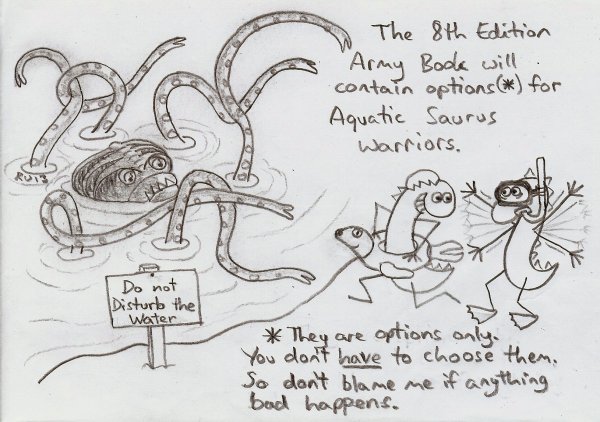 The 8th Edition
Army Book will
contain options(*) for
Aquatic Saurus
Warriors.
RVIZ
Do not
Disturb the
Water
* They are options only.
You don't have to choose them.
So don't blame me if anything
bad happens.